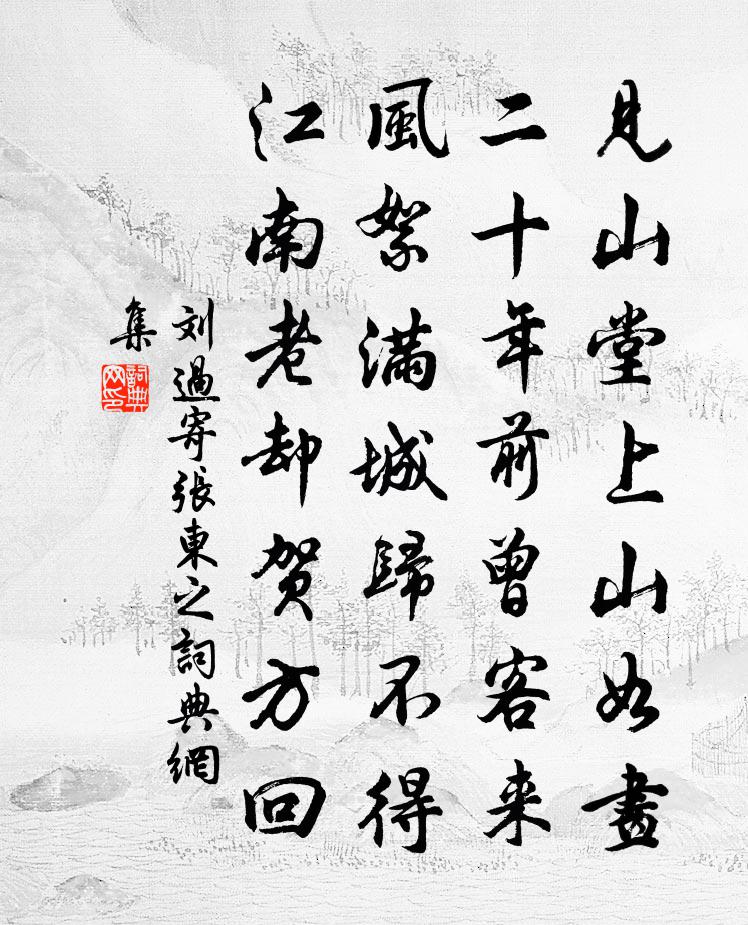 見山堂上山如畫
二十年前曾客来
風絮滿城歸不得
江南老却贺方回
刘過寄張東之詞典網
集
詞典
网印